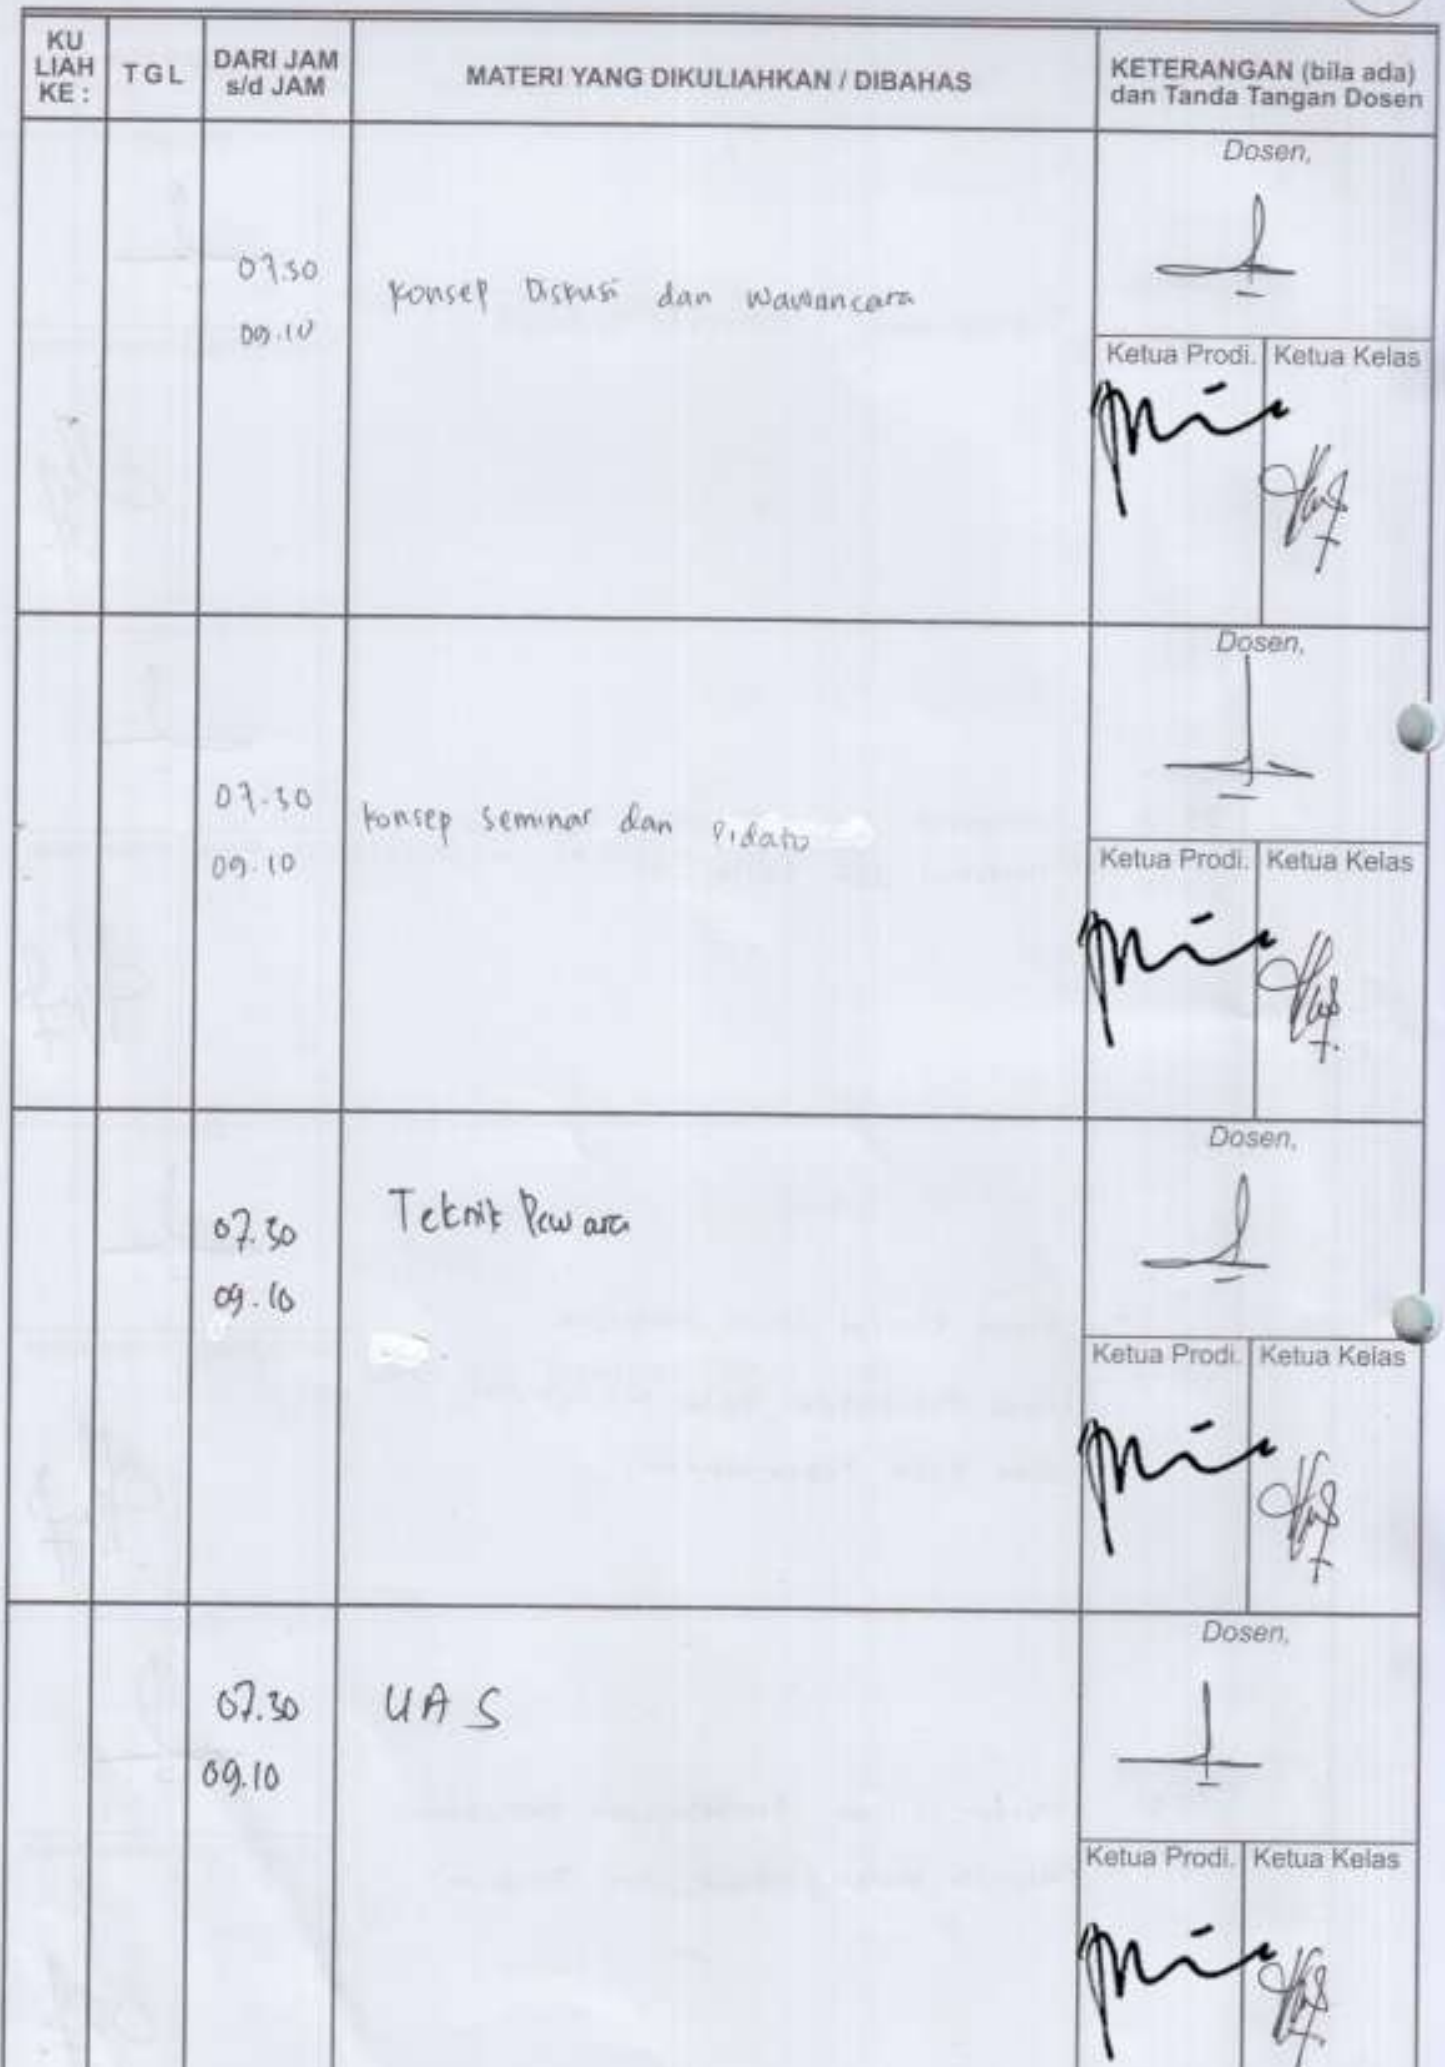 KU LIAH KE :
TGL
DARI JAM s/d JAM
MATERI YANG DIKULIAHKAN / DIBAHAS
KETERANGAN (bila ada) dan Tanda Tangan Dosen
07.30
09.10
Konsep Diskusi dan Wawancara
Dosen,
Ketua Prodi.
Ketua Kelas
07.30
09.10
Konsep Seminar dan Pidato
Dosen,
Ketua Prodi.
Ketua Kelas
07.30
09.10
Teknik Pewara
Dosen,
Ketua Prodi.
Ketua Kelas
07.30
09.10
UAS
Dosen,
Ketua Prodi.
Ketua Kelas